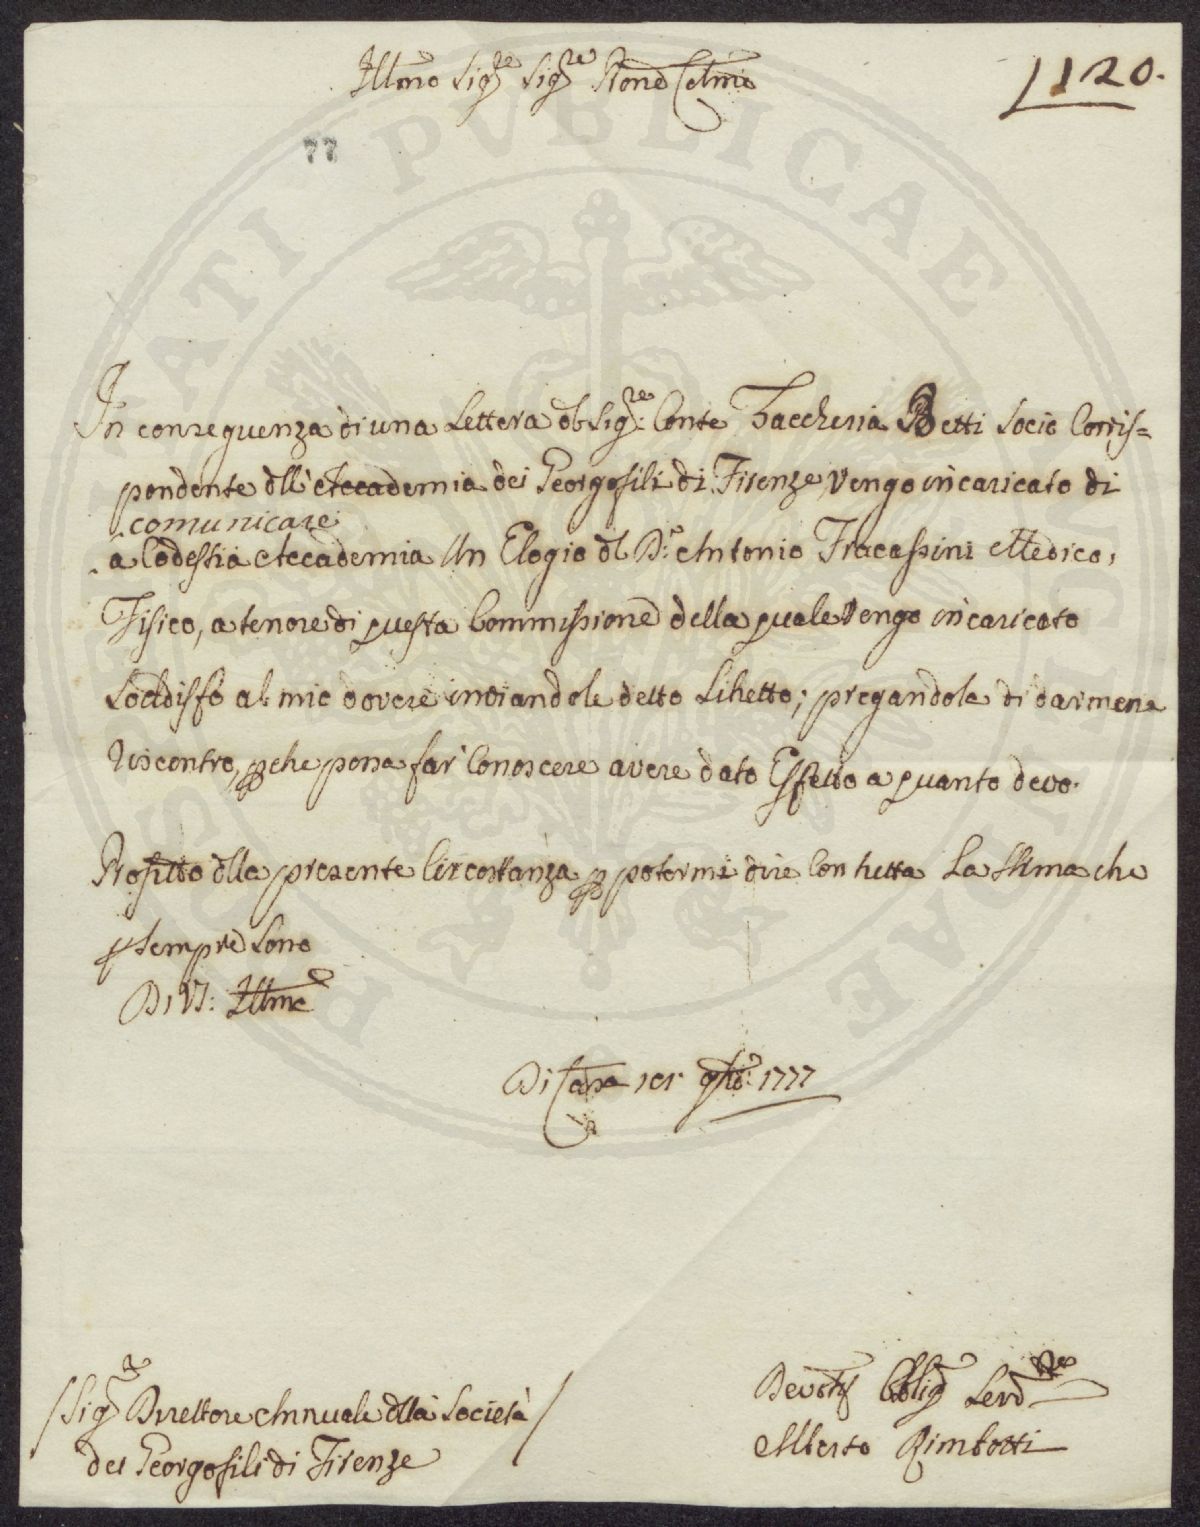 Illmo Sigre Sigre Prone Colmo
1120.
77
In conseguenza di una Lettera del Sigre: Conte Zaccheria Betti Socio Corris=
pondente dell'Accademia dei Georgofili di Firenze, vengo incaricato di
comunicare
a Codestia Accademia Un Elogio del Dr. Antonio Fracassini Medico,
Fisico, a tenore di questa Commissione della quale Vengo incaricato
Soddisfo al mio dovere inviandole detto Libetto; pregandola di darmene
riscontro, pche possa far Conoscere avere dato Effetto a quanto devo.
Profitto della presente Circostanza p potermi dire Con tutta La Stima che
p sempre Sono
Di VS: Illma
Di Casa 1 gbre: 1777
/Sigre Direttore Annuale della Società/
dei Georgofili di Firenze
Devotmo Obligmo Servre
Alberto Rimbotti
PVBLICAE